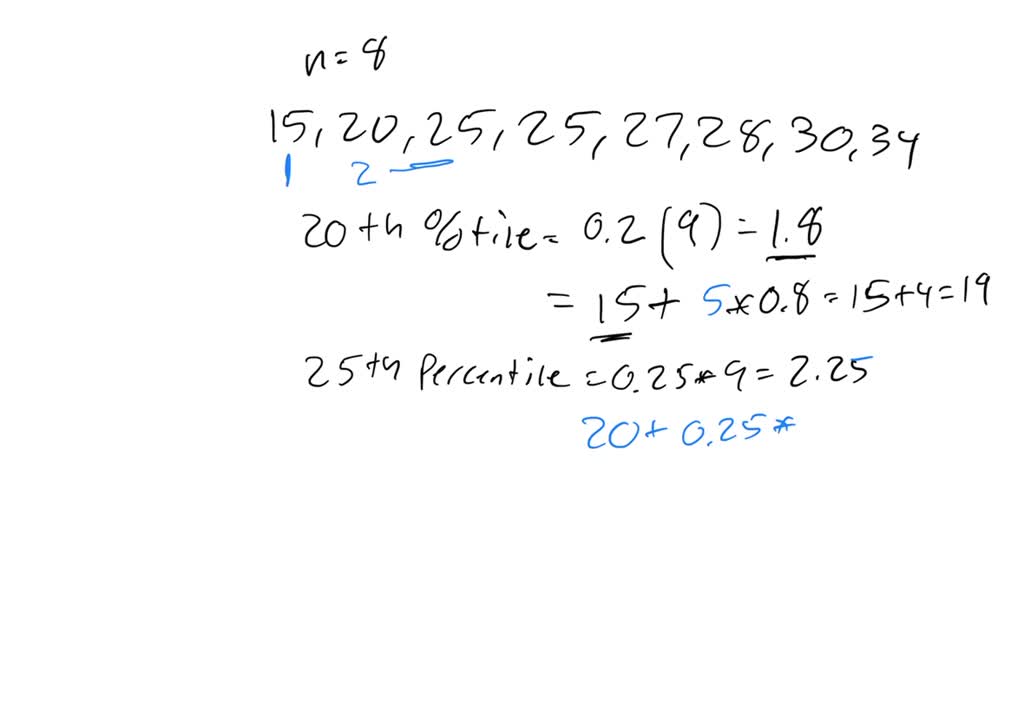 n = 8
15, 20, 25, 25, 27, 28, 30, 34
1 2
20th %tile = 0.2 (9) = 1.8
= 15 + 5 * 0.8 = 15 + 4 = 19
25th Percentile = 0.25 * 9 = 2.25
20 + 0.25 *